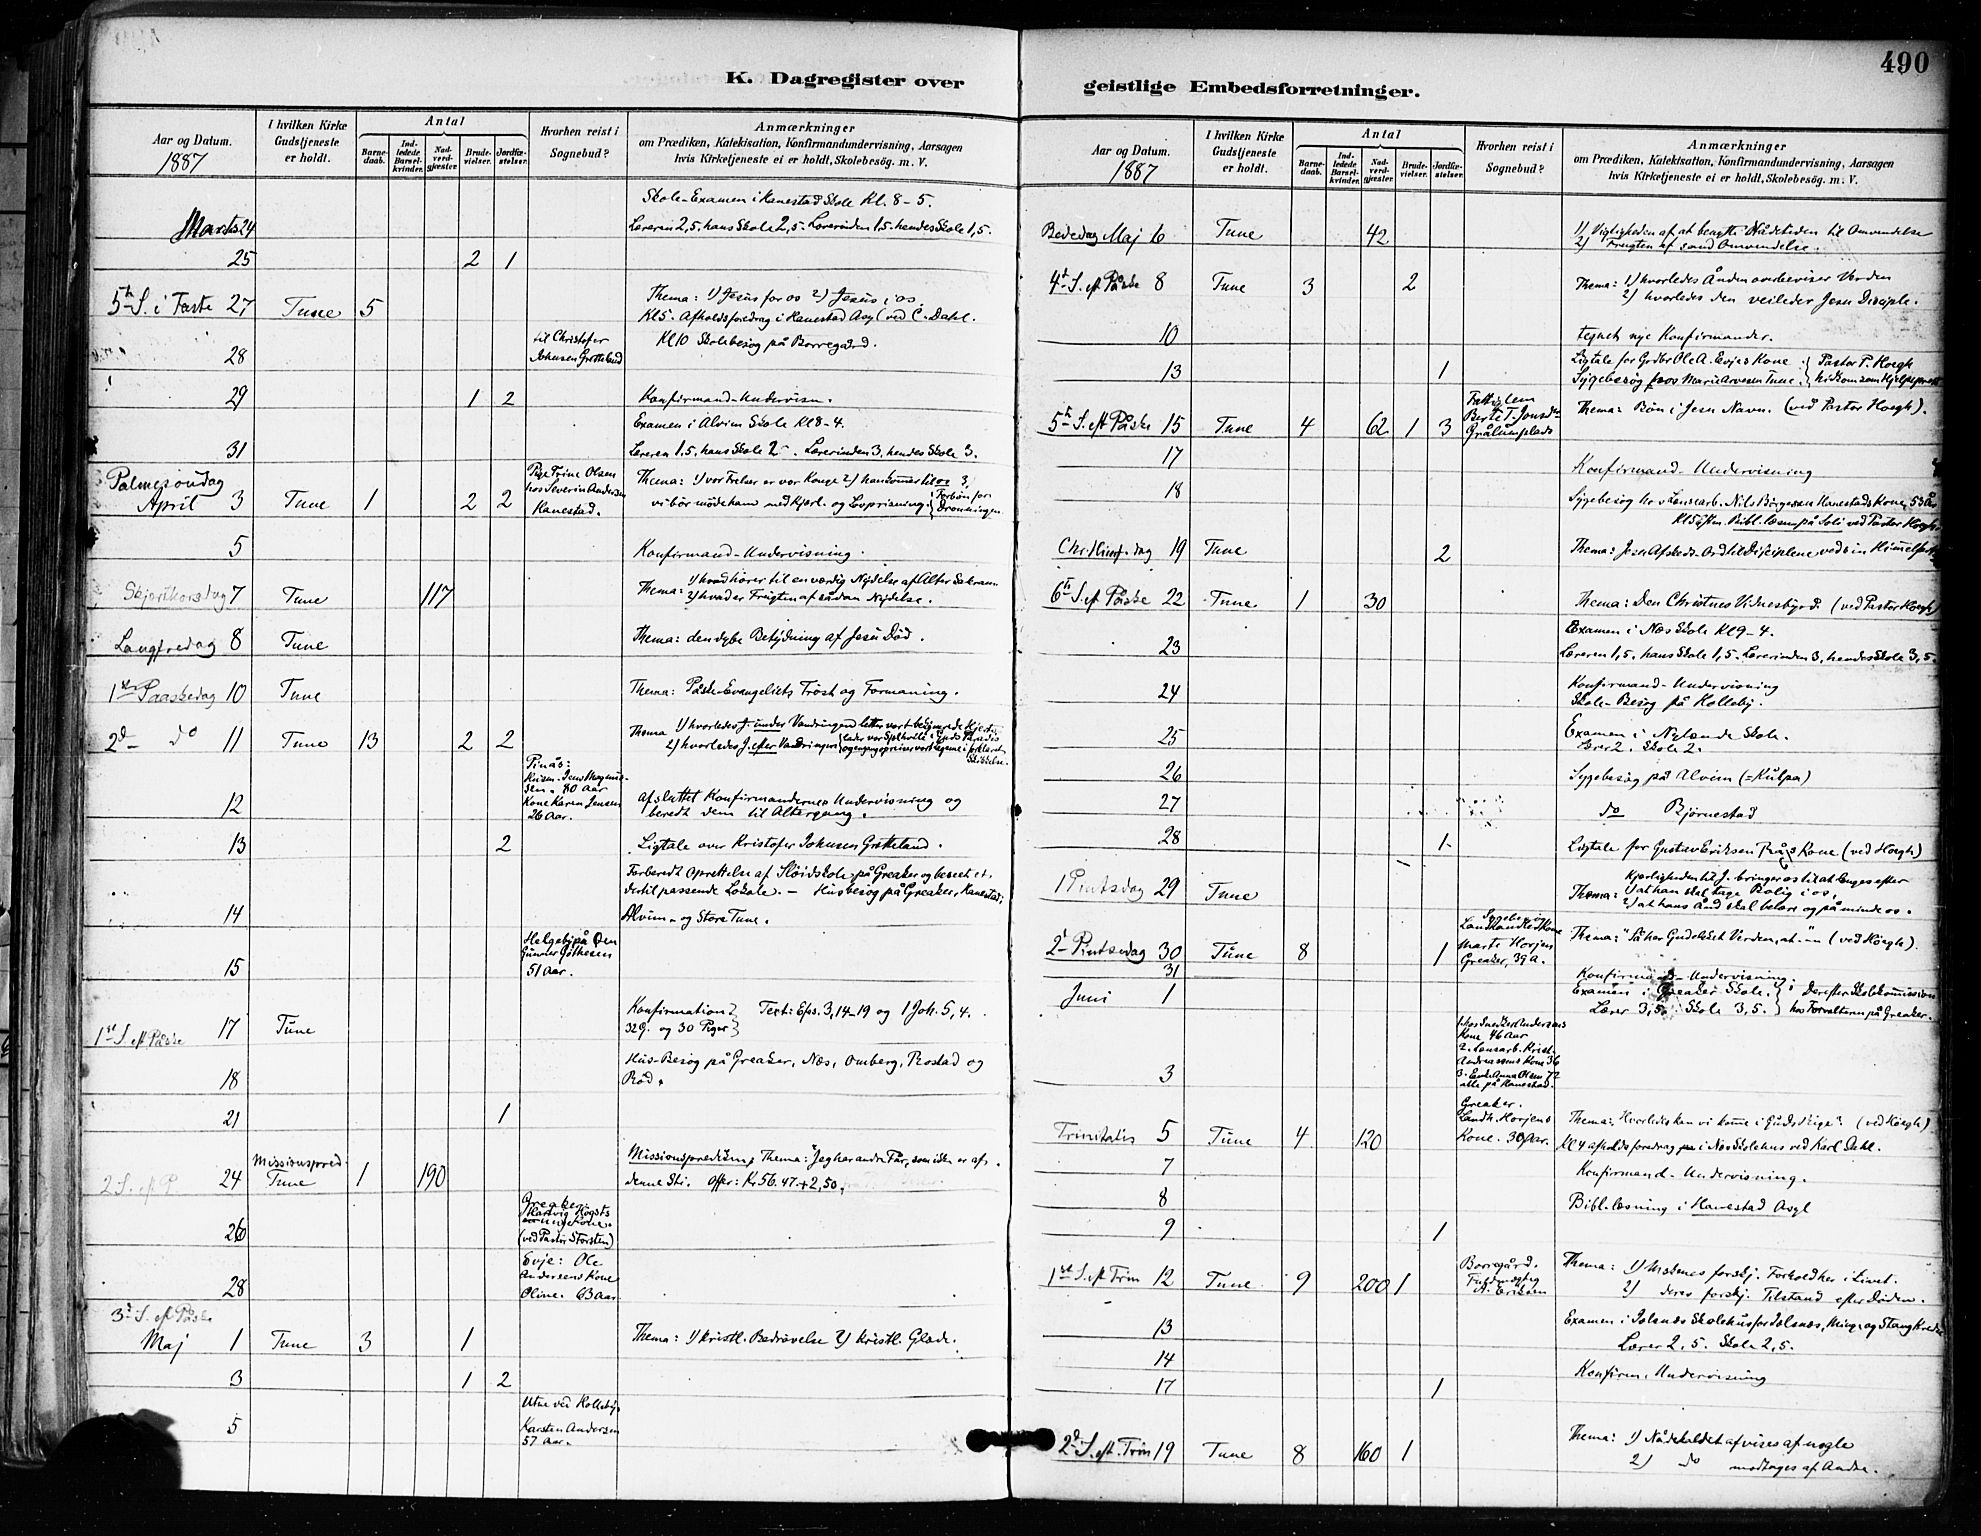 490
K. Dagregister over
Aar og Datum.
1887
I hvilken Kirke Gudstjeneste er holdt.
Antal
Barnedaab.
Indledede Barselkvinder.
Nadverdgjæster.
Brudevielser.
Jordfæstelser.
Hvorhen reist i Sognebud?
Anmærkninger
om Prædiken, Katekisation, Konfirmandundervisning, Aarsagen
hvis Kirketjeneste ei er holdt, Skolebesøg. m. V.
Skole-Examen i Hanestad Skole Kl. 8-5.
Marts 24 Læreren 2,5. hans Skole 2,5. Lærerinden 1,5. hendes Skole 1,5.
25 2 1
5te S. i Faste 27 Tune 5 Thema: 1) Jesus for os 2) Jesus i os.
Kl 5. Afholdsforedrag i Hanestad Asyl (ved C. Dahl.
28 til Christofer Johnsen Grøtteland Kl 10 Skolebesøg på Borregård.
29 1 2 Konfirmand-Undervisn.
Examen i Alvim Skole Kl 8-4.
31 Læreren 1,5. hans Skole 2. Lærerinden 3, hendes Skole 3.
Palmesøndag
April 3 Tune 1 2 2 Pige Trine Olsen hos Severin Andersen Hanestad. Thema: 1) vor Frelser er vor Konge 2) han kommer til os 3,
vi bør møde ham med Kjærl. og Lovprisning. Forbøn for Dronningen
5 Konfirmand-Undervisning.
Skjærthorsdag 7 Tune 117 Thema: 1) hvad hører til en værdig Nydelse af Alter Sakram
2) hvad er Frugten af sådan Nydelse.
Langfredag 8 Tune Thema: den dybe Betydning af Jesu Død.
1ste Paaskedag 10 Tune Thema: Påske-Evangeliets Trøst og Formaning.
2d do 11 Tune 13 2 2 Thema 1) hvorledes J. under Vandringen letter vort besværede Hjerte,
2) hvorledes J. efter Vandringen
12 Afsluttet Konfirmandernes Undervisning og
beredt dem til Altergang.
Jens Magnussen. 80 Aar
Kone Karen Jensen
26 Aar.
13 2 Ligtale over Kristofer Johnsen Grøtteland.
Forberedt Oprettelse af Sløidskole på Greaker og beseet et
dertil passende Lokale. - Husbesøg på Greaker, Hanestad,
14 Alvim- og Store Tune.
15 Helgeby på Øen Gunder 51 Aar.
1ste S. eft Påske 17 Tune Konfirmation Text: Efes. 3,14-19 og 1 Joh. 5,4.
32 G. og 30 Piger
18 Hus-Besøg på Greaker, Næs, Omberg, Rostad og
Rød.
21 1
2 S. eft P 24 Missionspræd. Tune 1 190 Missionsprædiken; Thema: Jeg har andre Får, som ikke er af
denne Sti. Offer: Kr 56.47 + 2,50,
26 Greaker Hartvig (ved Pastor Torsten)
28 Evje: Ole Andersens Kone Oline. 63 Aar
3d S. eft Påske
Maj 1 Tune 3 1 Thema: 1) kristl. Bedrøvelse 2) kristl. Glæde.
3 1 2
5 Utne ved Kolleby Karsten Andersen 57 Aar.
geistlige Embedsforretninger.
Aar og Datum.
1887
I hvilken Kirke Gudstjeneste er holdt.
Antal
Barnedaab.
Indledede Barselkvinder.
Nadverdgjæster.
Brudevielser.
Jordfæstelser.
Hvorhen reist i Sognebud?
Anmærkninger
om Prædiken, Katekisation, Konfirmandundervisning, Aarsagen
hvis Kirketjeneste ei er holdt, Skolebesøg. m. V.
Bededag Maj 6 Tune 42 1) Vigtigheden af at benytte Nådetiden til Omvendelse
2) Frugten af sand Omvendelse.
4d S. eft Påske 8 Tune 3 2 Thema: 1) hvorledes Ånden overbeviser Verden
2) hvorledes den veileder Jesu Disciple.
10 tegnet nye Konfirmander.
13 1 Ligtale for Grdbr Ole A. Evjes Kone Pastor P. Høegh
Sygebesøg hos Marie Arvesen Tune hidkom som Hjelpeprest
5te S. eft Påske 15 Tune 4 62 1 3 Fattiglem Berte T. Jonsd. Grålumplads Thema: Bøn i Jesu Navn. (ved Pastor Høegh).
17 Konfirmand-Undervisning
18 Sygebesøg Nils Børgesen Hanestads Kone, 53 År
Bibl. læsn på Soli ved Pastor Høegh
Chr. Himf. dag 19 Tune 2 Thema: Jesu Afskeds-Ord til Disciplene ved sin Himmelfart
6te S. eft Påske 22 Tune 1 30 Thema: Den Christnes Vidnesbyrd. (ved Pastor Høegh)
23 Examen i Næs Skole Kl 9-4.
Læreren 1,5. hans Skole 1,5. Lærerinden 3, hendes Skole 3,5.
24 Konfirmand-Undervisning
Skole-Besøg på Kolleby.
25 Examen i Nylænde Skole.
Lærer 2. Skole 2.
26 Sygebesøg på Alvim (=Kulpa)
27 do Bjørnestad
28 1 Ligtale for Gustav Eriksen Kone (ved Høegh)
1 Pintsdag 29 Tune Kjærligheden til J. bringer os til at længes efter
Thema: 1) at han skal tage Bolig i os.
2) at hans Ånd skal belære og påminde os.
2d Pintsedag 30 Tune 8 1 Sygebesøg Kone Marte Horjen Greaker, 39 A. Thema: "Så har Gud elsket Verden, at -" (ved Høegh).
31 Konfirmand-Undervisning.
Juni 1 Examen i Greaker Skole. Derefter Skolekommission
Lærer 3,5. Skole 3,5. hos Forvalteren på Greaker.
3 1. hos Snedker Andersens
Kone 46 Aar
2. Kone 36
3. Enke Anna Olsen 72
alle på Hanestad.
Trinitatis 5 Tune 4 120 Greaker. Landh. Horjens Kone. 39 Aar. Thema: Hvorledes kan vi komme i Guds Rige? (ved Høegh)
Kl 4 afholdsforedrag i Næs Skolehus ved Karl Dahl.
7 Konfirmand-Undervisning.
8 Bibl. læsning i Hanestad Asyl
9 1
1ste S. eft Trin 12 Tune 9 200 1 Borregård. A. Eriksen Thema: 1) Mskenes forskj. Forhold her i Livet.
2) deres forskj. Tilstand efter Døden.
13 Examen i Solnæs Skolehus for Solnæs, Minge og Stang Kredse
Lærer 2,5. Skole 2,5.
14 Konfirm. Undervisning
17 1
2d S. eft. Trin 19 Tune 8 160 1 Thema: 1) Nådekaldet afvises af nogle
2) do modtages af Andre.